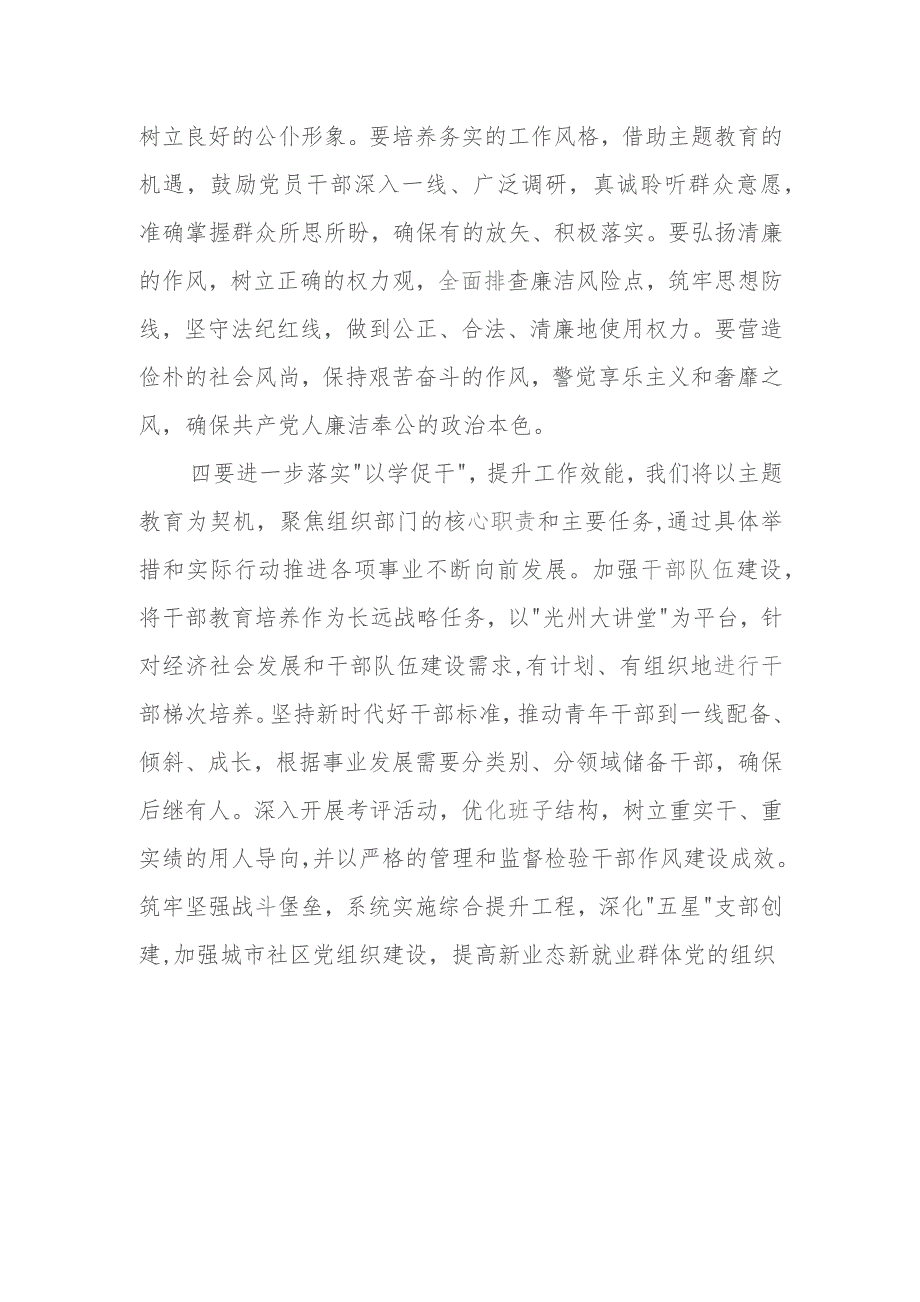 树立良好的公仆形象。要培养务实的工作风格，借助主题教育的
机遇，鼓励党员干部深入一线、广泛调研，真诚聆听群众意愿，
准确掌握群众所思所盼，确保有的放矢、积极落实。要弘扬清廉
的作风，树立正确的权力观，全面排查廉洁风险点，筑牢思想防
线，坚守法纪红线，做到公正、合法、清廉地使用权力。要营造
俭朴的社会风尚，保持艰苦奋斗的作风，警觉享乐主义和奢靡之
风，确保共产党人廉洁奉公的政治本色。
四要进一步落实"以学促干"，提升工作效能，我们将以主题
教育为契机，聚焦组织部门的核心职责和主要任务,通过具体举
措和实际行动推进各项事业不断向前发展。加强干部队伍建设，
将干部教育培养作为长远战略任务，以"光州大讲堂"为平台，针
对经济社会发展和干部队伍建设需求,有计划、有组织地进行干
部梯次培养。坚持新时代好干部标准，推动青年干部到一线配备、
倾斜、成长，根据事业发展需要分类别、分领域储备干部，确保
后继有人。深入开展考评活动，优化班子结构，树立重实干、重
实绩的用人导向,并以严格的管理和监督检验干部作风建设成效。
筑牢坚强战斗堡垒，系统实施综合提升工程，深化"五星"支部创
建,加强城市社区党组织建设，提高新业态新就业群体党的组织